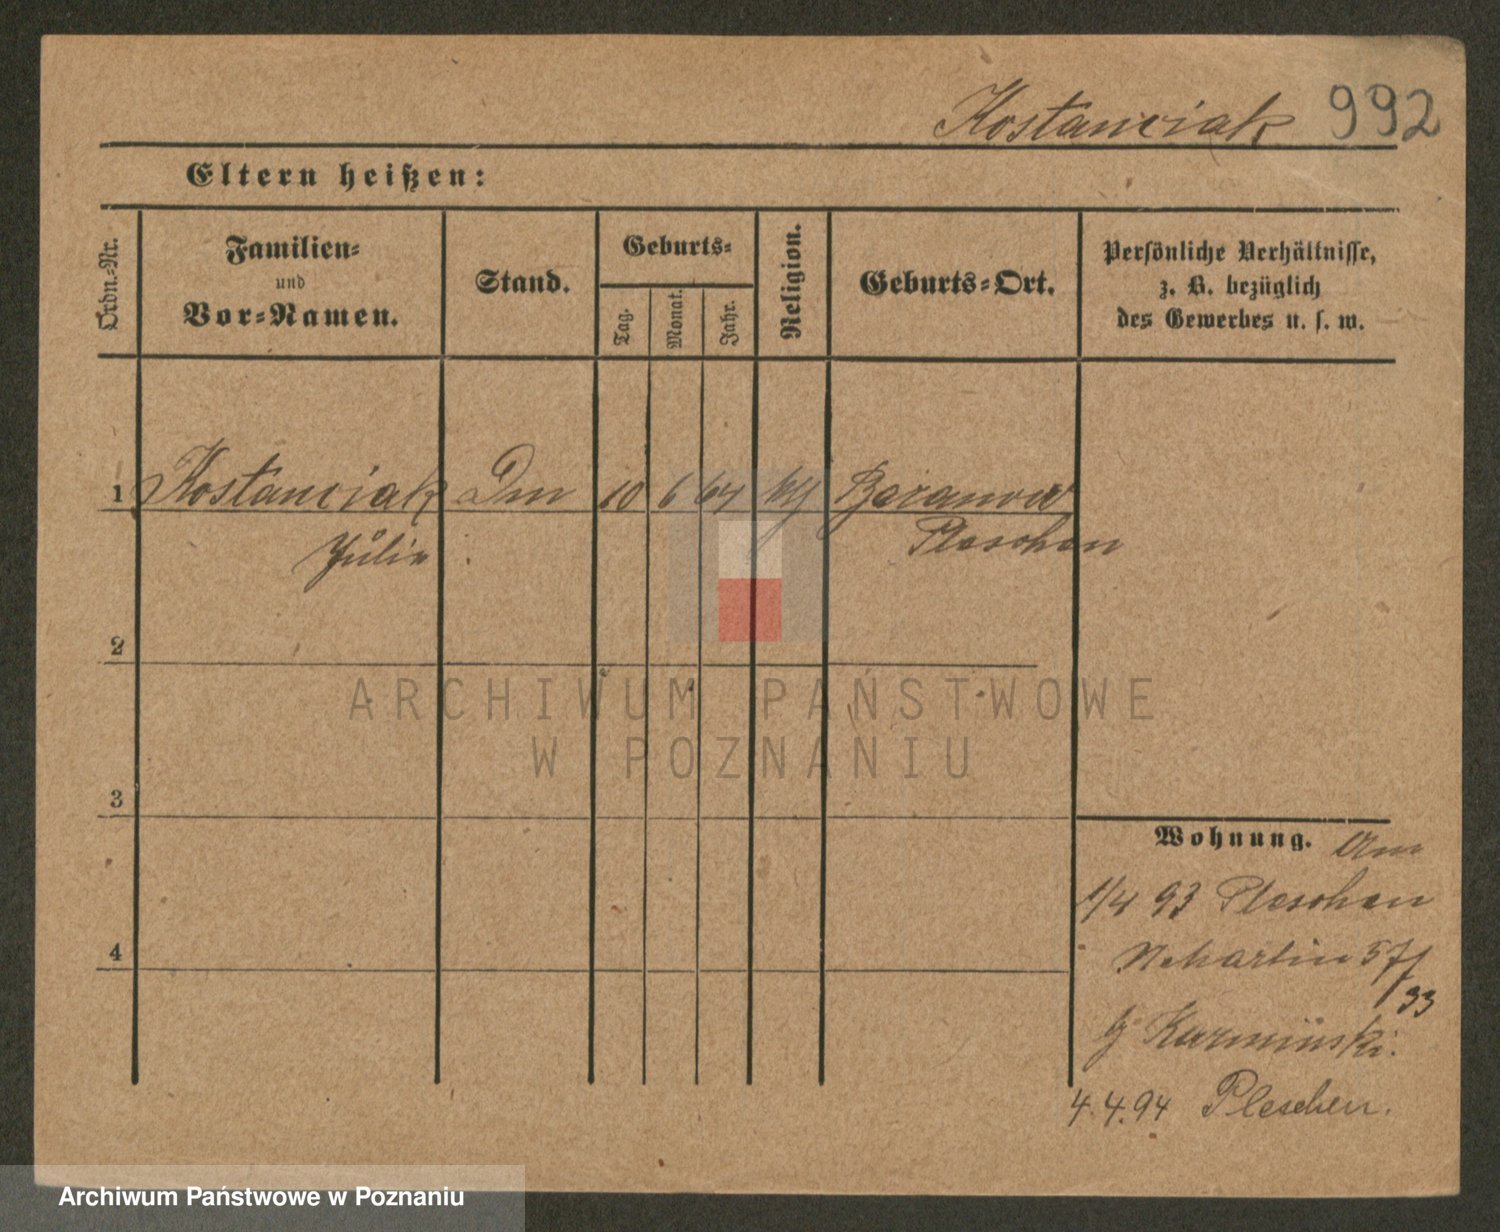 Kostanciak 992
Eltern heißen:
Ordn.-Nr.
Familien-
und
Vor-Namen.
Stand.
Geburts-
Tag.
Monat.
Jahr.
Religion.
Geburts-Ort.
Persönliche Verhältnisse,
z. B. bezüglich
des Gewerbes u. s. w.
1 Kostanciak 10 6 64 Baranow
Julie Pleschen
2
3
4
Wohnung.
1/4 93 Pleschen
Martin 57/
33
b Kazminski.
4.4.94 Pleschen.
ARCHIWUM PAŃSTWOWE
W POZNANIU
Archiwum Państwowe w Poznaniu